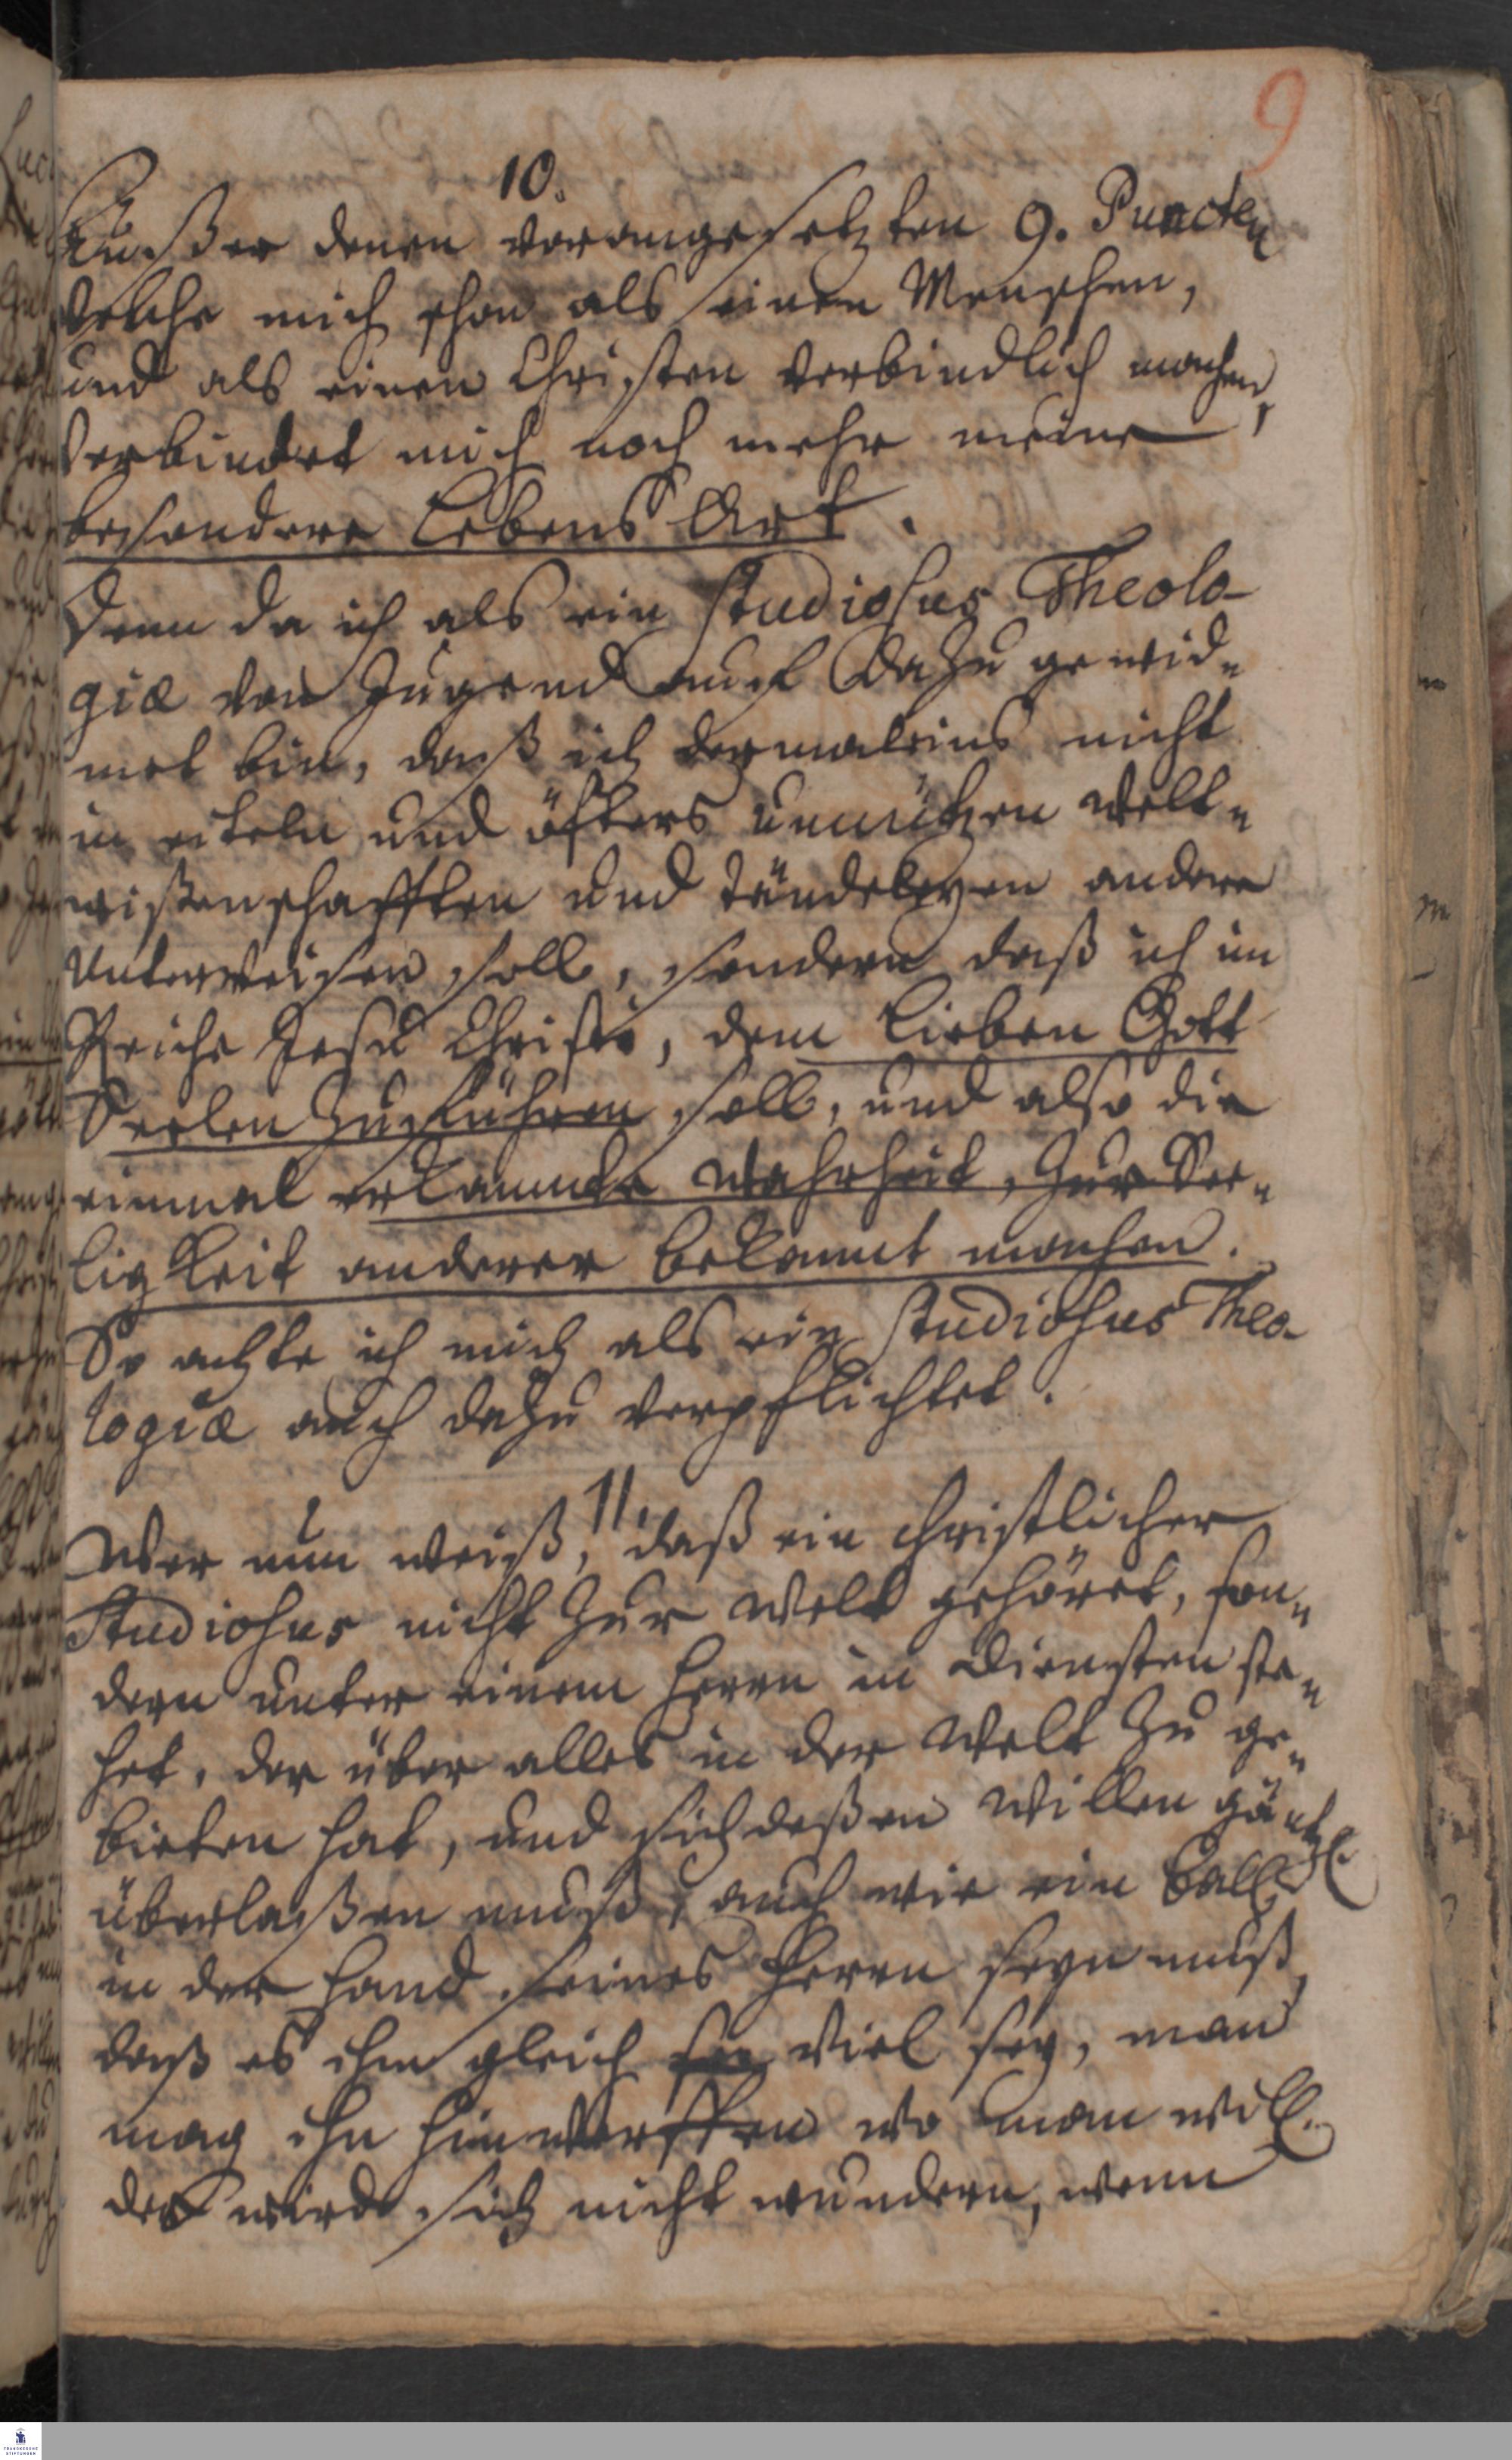 9
10.
Außer denen vorangesetzten 9. Puncten
welche mich schon als einen Menschen,
und als einen Christen verbindlich machen,
verbindet mich noch mehr meine
besondere Lebens Art.
Denn da ich als ein Studiosus Theolo-
giæ von Jugend auf dazu gewid-
met bin, daß ich dermaleins nicht
in eiteln und öfters unnützen Welt-
wißenschafften und Tändeleyen andere
unterweisen soll, sondern daß ich im
Reiche Jesu Christi, dem lieben Gott
Seelen zuführen soll, und also die
einmal erkannte Wahrheit, zur See-
ligkeit anderer bekannt machen.
So achte ich mich als ein Studiosus Theo-
logiæ auch dazu verpflichtet.
11.
Wer nun weiß, daß ein christlicher
Studiosus nicht zur Welt gehöret, son-
dern unter einem Herrn in Diensten ste-
het, der über alles in der Welt zu ge-
bieten hat, und sich deßen Willen gäntzl.
überlaßen muß, auch wie ein Ball
in der Hand seines Herrn seyn muß,
daß es ihm gleich viel sey, man
mag ihn hinwerffen wo man will.
der wird sich nicht wundern, wenn
FRANCKESCHE
STIFTUNGEN